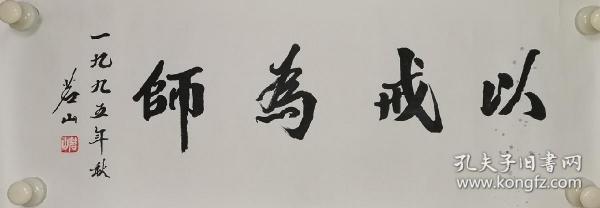 以戒為師
一九九五年秋
茗山
孔夫子旧书网
www.kongfz.com